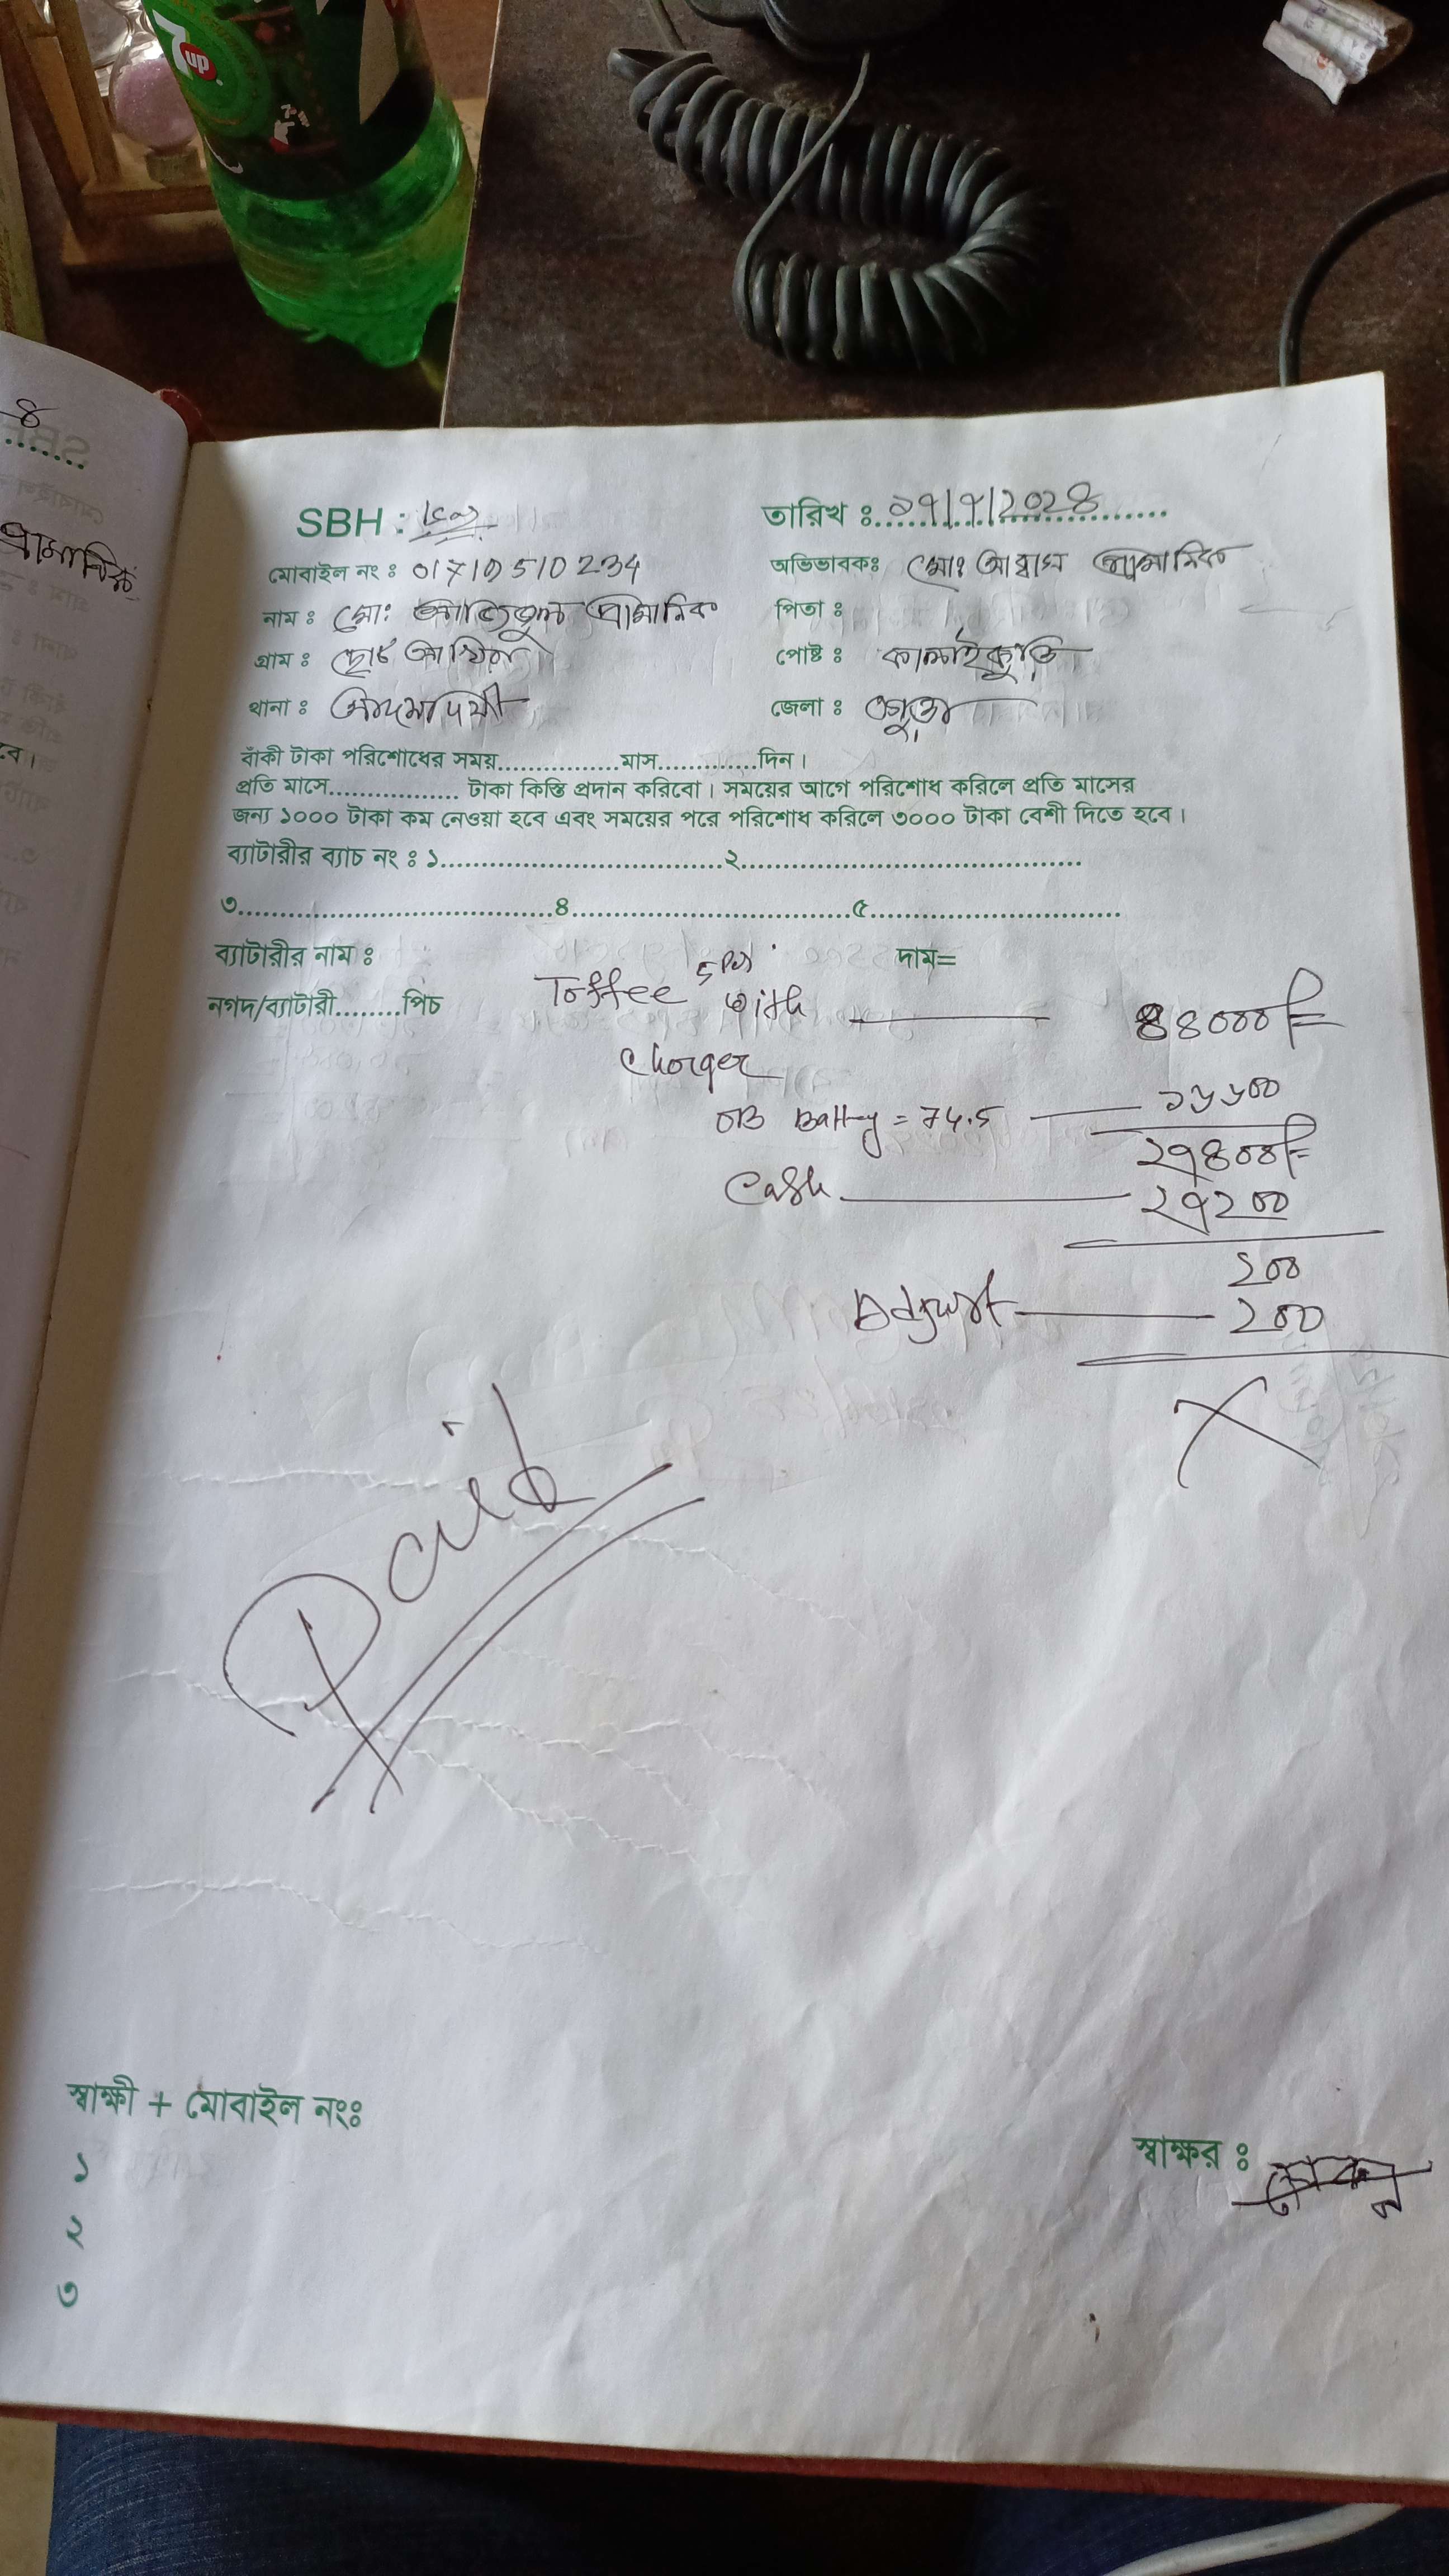 7up
SBH :
তারিখ : ২৭/৭/২০২৪
মোবাইল নং : 01719510234
অভিভাবকঃ মোঃ আব্বাস প্রামানিক
নাম : মোঃ প্রামানিক
পিতা :
গ্রাম : ছোট
পোষ্ট : কালাইকুড়ি
থানা : আদমদিঘী
জেলা : বগুড়া
বাঁকী টাকা পরিশোধের সময়................মাস.............দিন।
প্রতি মাসে................. টাকা কিস্তি প্রদান করিবো। সময়ের আগে পরিশোধ করিলে প্রতি মাসের
জন্য ১০০০ টাকা কম নেওয়া হবে এবং সময়ের পরে পরিশোধ করিলে ৩০০০ টাকা বেশী দিতে হবে।
ব্যাটারীর ব্যাচ নং : ১....................................২............................................
৩........................................৪....................................৫................................
ব্যাটারীর নাম :
দাম=
নগদ/ব্যাটারী........পিচ
Toffee 5 Pcs with ৪৪০০০/=
Charger
OB Battery = 74.5 ১৬৬০০
২৭৪০০/=
Cash ২৭২০০
২০০
Adjust ২০০
X
Paid
স্বাক্ষী + মোবাইল নংঃ
১
২
৩
স্বাক্ষর :